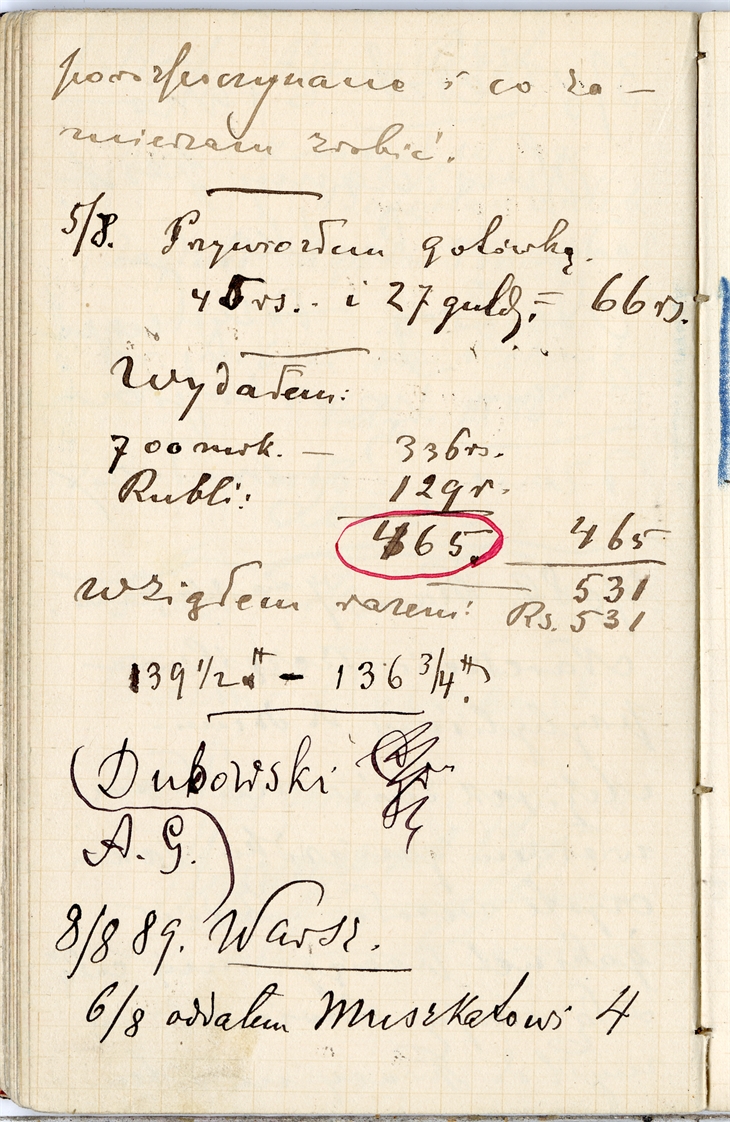 porozpoczynane i co za –
mierzam zrobić.
5/8. Przywiozłem gotówką.
45 rs. i 27 guld. = 66 rs.
Wydałem:
700 mrk. — 336 rs.
Rubli: 129 r.
465. 465
531
Wziąłem razem: Rs. 531
139 1/2 - 136 3/4
Dubowski
A. G.
8/8 89. Warsz.
6/8 oddałem Muszkatowi 4